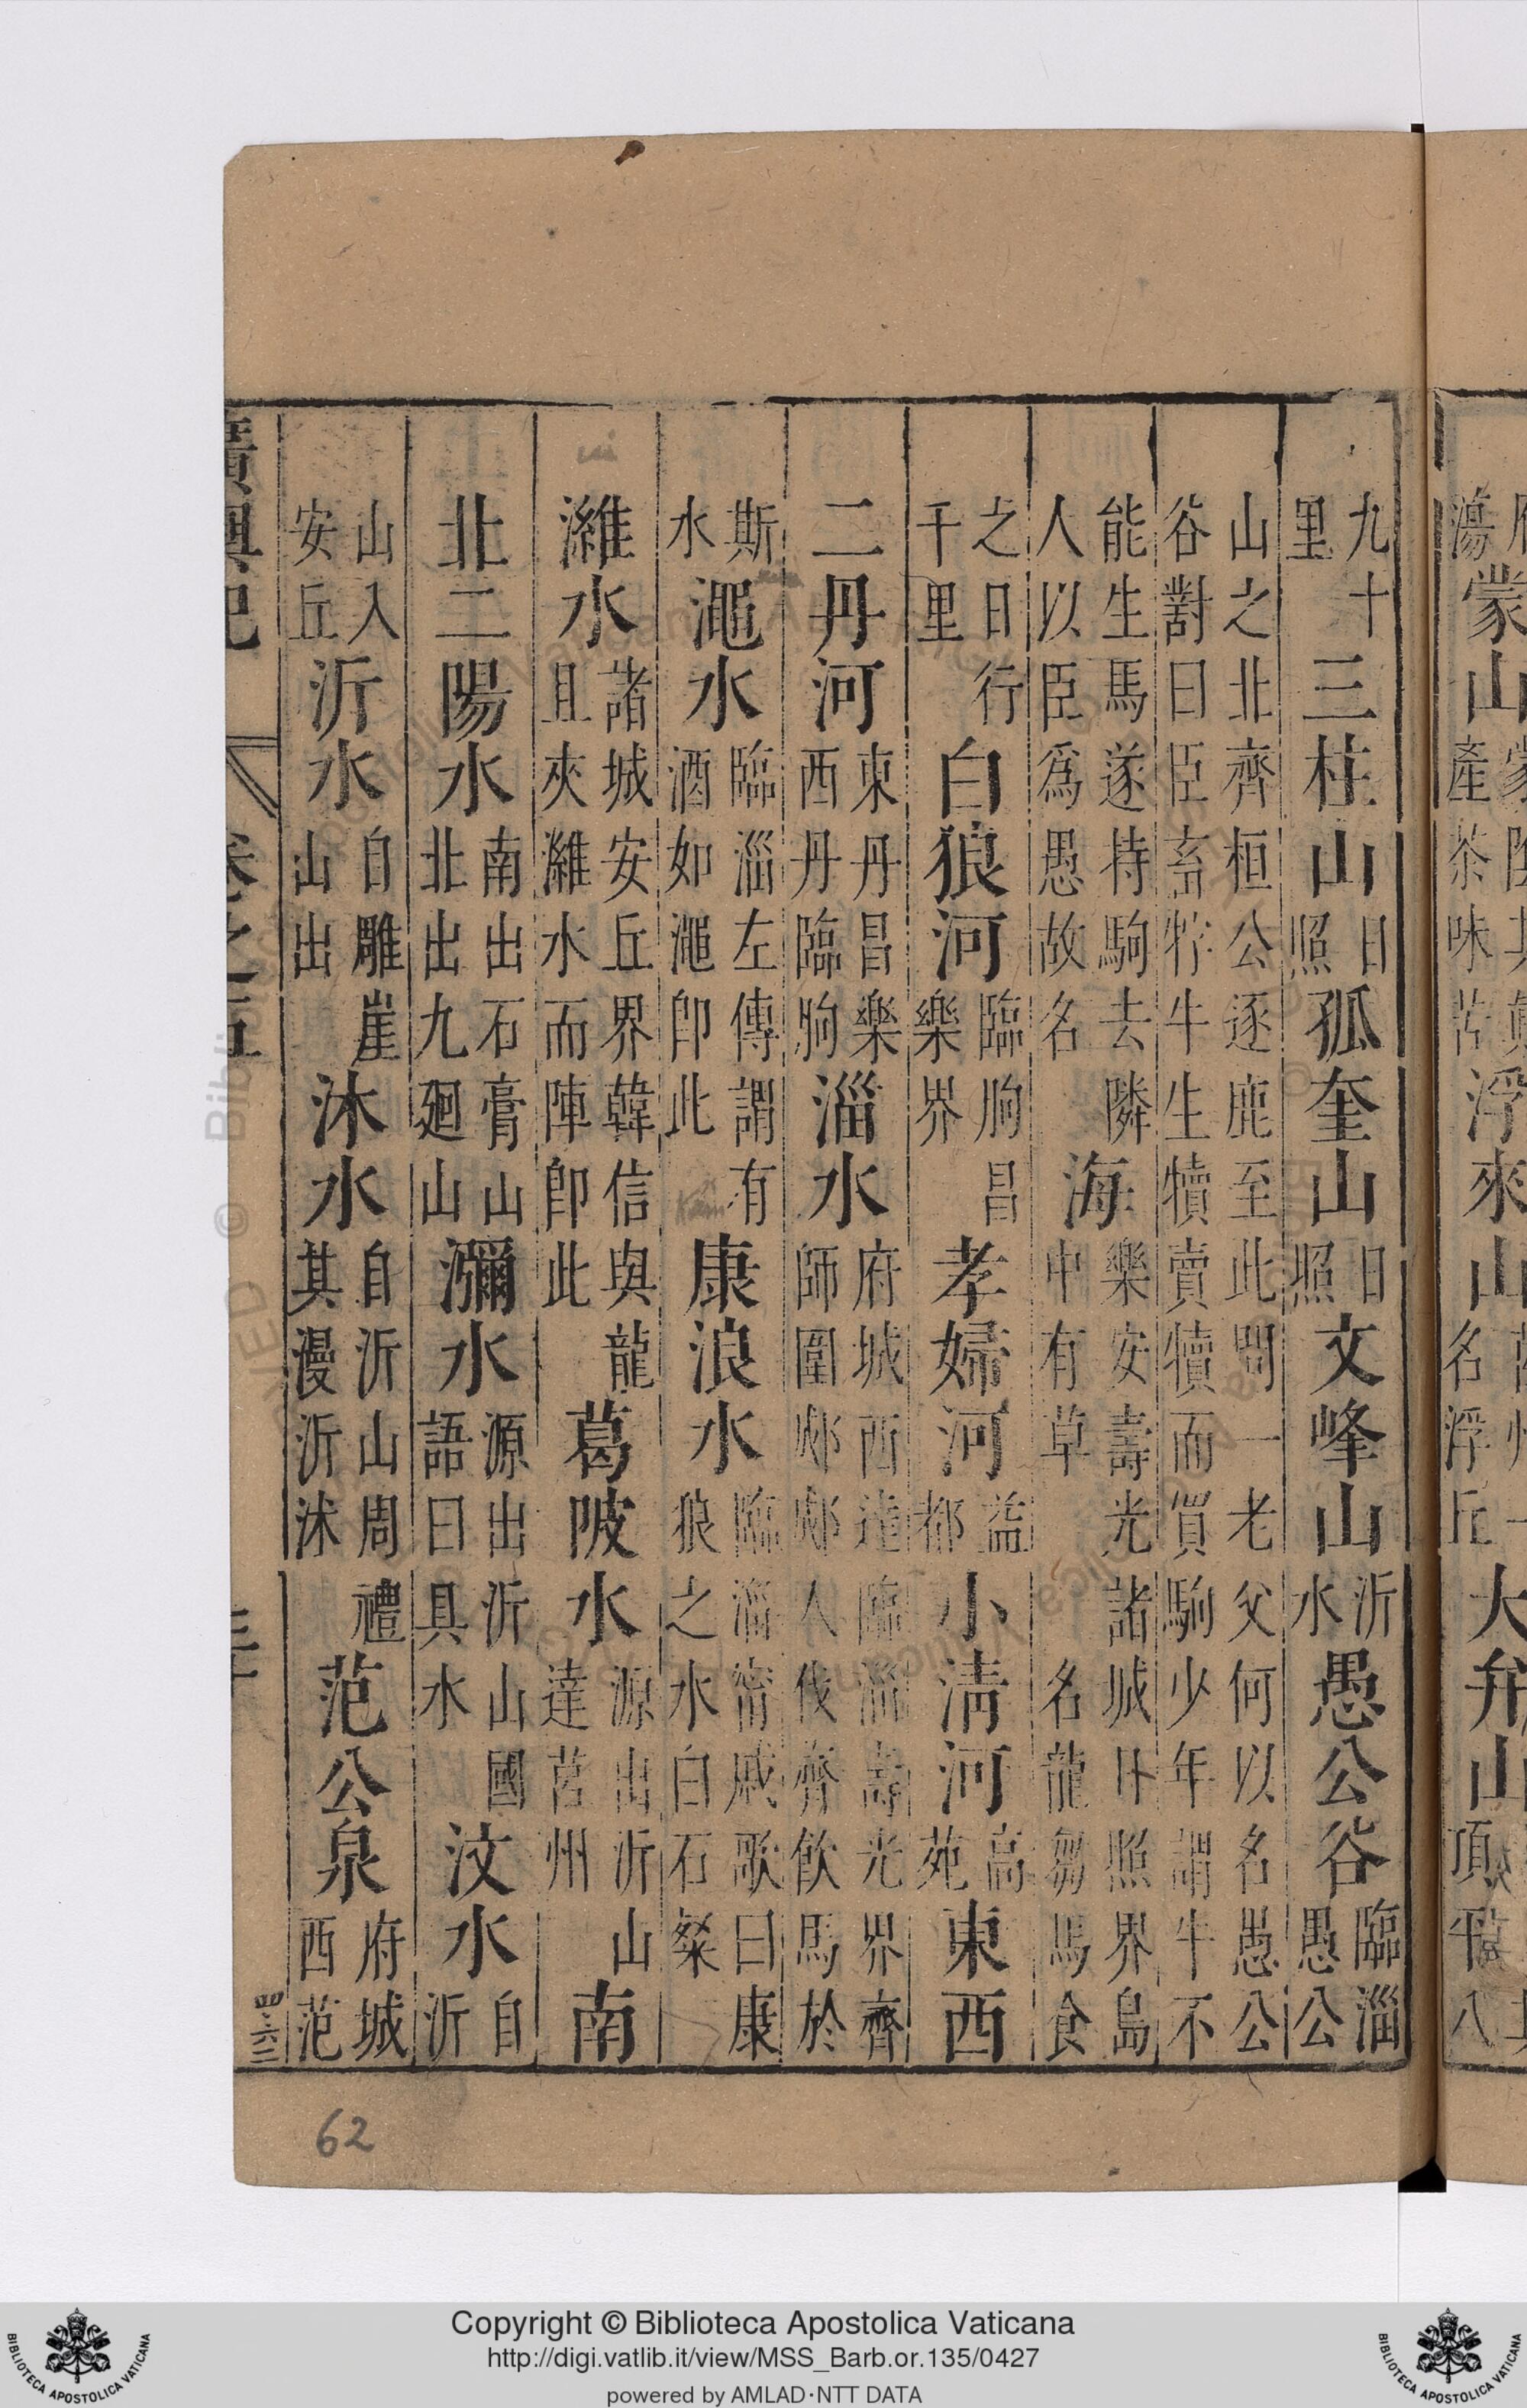 蕩 蒙山 產茶味苦 浮來山 名浮丘 大弁山 頂平八
九十里 三柱山 日照 孤奎山 日照 文峰山 沂水 愚公谷 臨淄愚公
山之北齊桓公逐鹿至此問一老父何以名愚公谷對曰臣畜牸牛生犢賣犢而買駒少年謂牛不
能生馬遂持駒去隣人以臣爲愚故名 海 樂安壽光諸城日照界島中有草名龍芻馬食
之日行千里 白狼河 臨朐昌樂界 孝婦河 益都 小淸河 高苑 東西
二丹河 東丹昌樂西丹臨朐 淄水 府城西達臨淄壽光界齊師圍郕郕人伐齊飮馬於
斯水 澠水 臨淄左傳謂有酒如澠卽此 康浪水 臨淄甯戚歌曰康狼之水白石粲
濰水 諸城安丘界韓信與龍且夾濰水而陣卽此 葛陂水 源出沂山達莒州 南
北二陽水 南出石膏山北出九廻山 瀰水 源出沂山國語曰具水 汶水 自沂
山入安丘 沂水 自雕崖山出 沭水 自沂山周禮其漫沂沭 范公泉 府城西范
廣輿記 卷之五 三十
四六三
62
Copyright © Biblioteca Apostolica Vaticana
http://digi.vatlib.it/view/MSS_Barb.or.135/0427
powered by AMLAD·NTT DATA
BIBLIOTECA APOSTOLICA VATICANA
BIBLIOTECA APOSTOLICA VATICANA